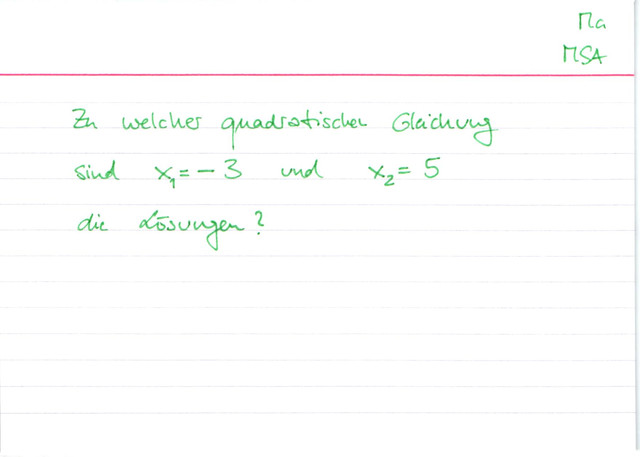 Ma
MSA
Zu welcher quadratischen Gleichung
sind x₁ = – 3 und x₂ = 5
die Lösungen?